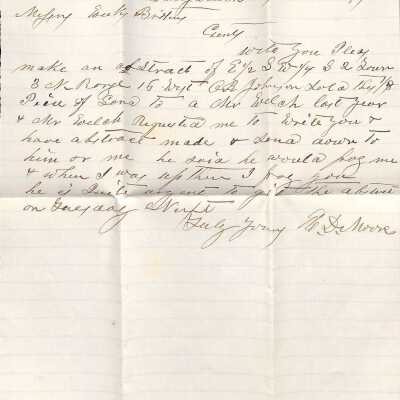 Messrs Brothers
Gents
Will you Pleas
make an abstract of E 1/2 S W 1/4 S 2 Town
3 N Range 15 West C B Johnson Sold this
Piece of Land to a Mr Welch last year
& Mr Welch Requested me to Write you &
have abstract made & Send down to
him or me he said he would pay me
& when I was up then I pay you
he is Quite urgent to git the abstract
on Tuesday Next
Truly Yours D. Moore